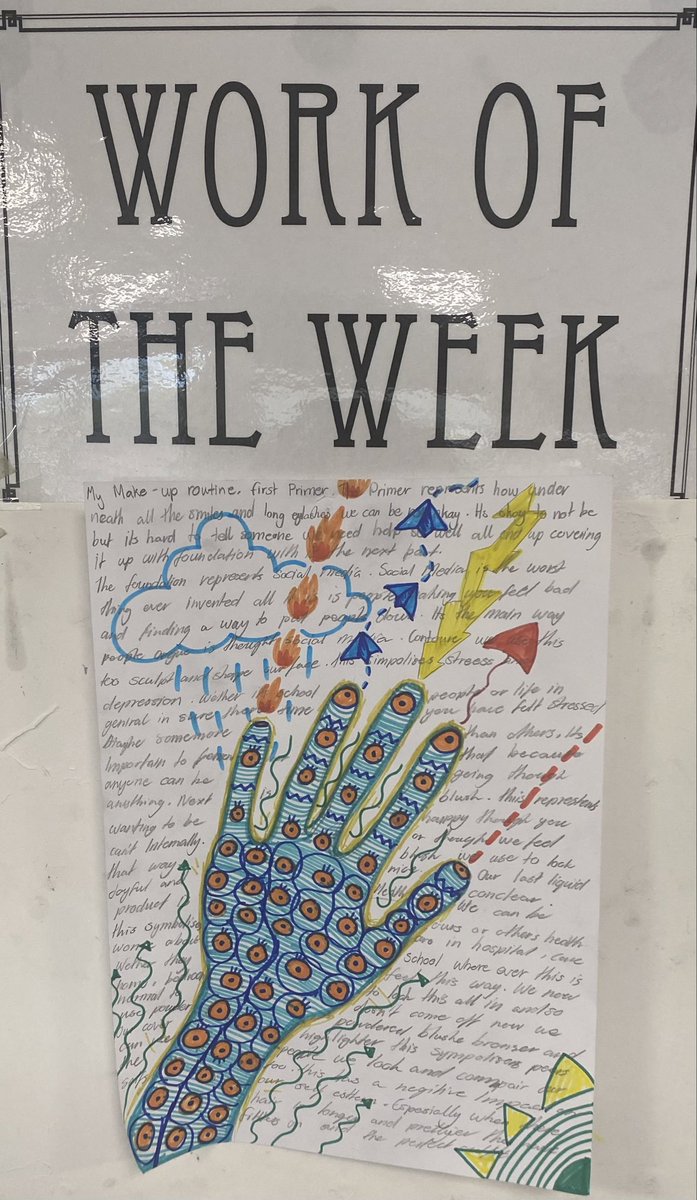 WORK OF
THE WEEK
My Make-up routine. first Primer. The Primer represents how under
neath all the smiles and long we can be okay. Its okay to not be
but its hard to tell someone we need help so well all end up covering
it up with foundation with the next part.
The foundation represents Social media. Social Media is the worst
thing ever invented all is people making you feel bad
and finding a way to put people down. Its the main way
people is thought social media. Contour we use this
too sculpt and shape our face. this simpolizes stresss
depression. Wether is school people or life in
geniral in some time you have felt stressed
Maybe somemore than others. Its
important to that because
anyone can be going though
anything. Next blush. this represents
wanting to be happy though you
can't Internally. or though we feel
that way blush we use to look
Joyful and Our last liquid
product conclear.
this symbolises We can be
about ours or others health
are in hospital, care
home, school where ever this is
normal feel this way. We now
use to this all in andso
our dont come off now we
can be powdered blushe bronser and
the highlighter this sympolisers
self we look and compair our
too. This has a negitive
our own esteem. Especially when
has longer and prettier
the perfect